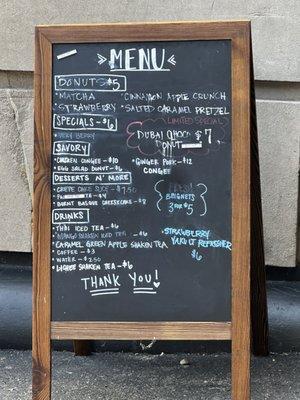 MENU
DONUTS $5
• MATCHA • CINNAMON APPLE CRUNCH
• STRAWBERRY • SALTED CARAMEL PRETZEL
SPECIALS - $6
• VERY BERRY
LIMITED SPECIAL!
DUBAI CHOCO $7
DONUT
SAVORY
• CHICKEN CONGEE - $10
• EGG SALAD DONUT - $6
• GINGER PORK - $12
CONGEE
DESSERTS N' MORE
• CREPE CAKE SLICE - $7.50
- $4
• BURNT BASQUE CHEESECAKE - $8
BEIGNETS
3 FOR $5
DRINKS
• THAI ICED TEA - $6
• MANGO SHAKEN ICE TEA - $6
• CARAMEL GREEN APPLE SHAKEN TEA
• COFFEE - $3
• WATER - $2.50
• LYCHEE SHAKEN TEA - $6
• STRAWBERRY
REFRESHER
$6
THANK YOU!